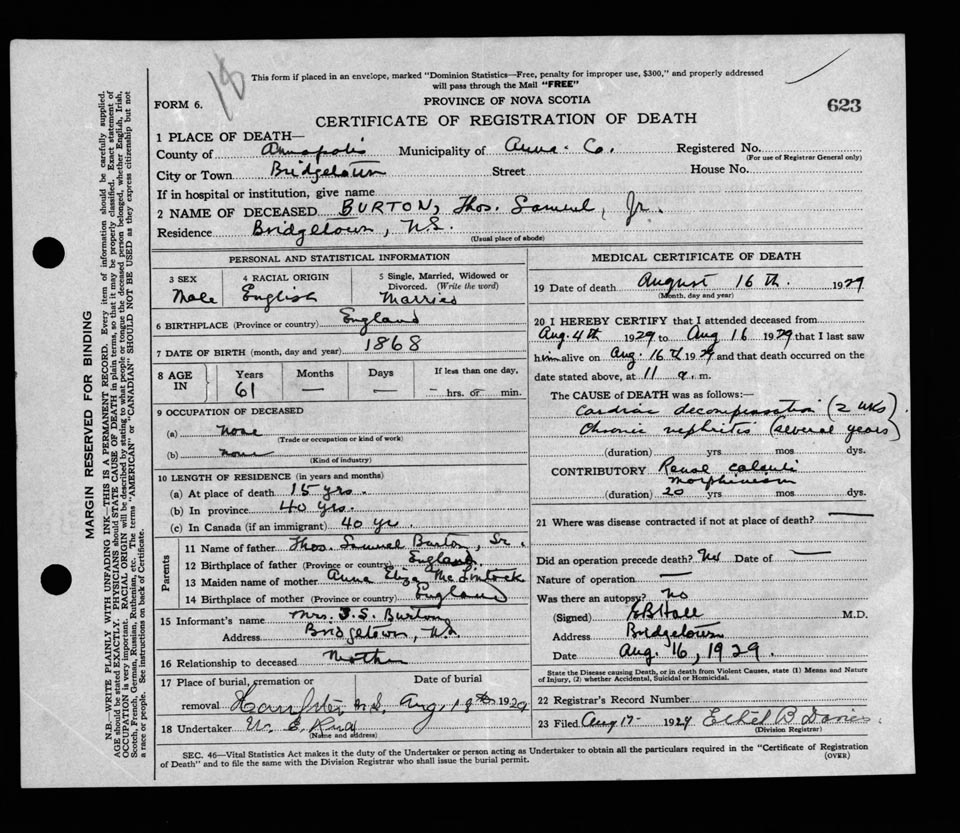 18
This form if placed in an envelope, marked "Dominion Statistics—Free, penalty for improper use, $300," and properly addressed
will pass through the Mail "FREE"
FORM 6.
PROVINCE OF NOVA SCOTIA
623
CERTIFICATE OF REGISTRATION OF DEATH
1 PLACE OF DEATH—
County of Annapolis Municipality of Anna. Co. Registered No.
(For use of Registrar General only)
City or Town Bridgetown Street House No.
If in hospital or institution, give name
2 NAME OF DECEASED BURTON, Thos. Samuel, Jr.
Residence Bridgetown, N.S.
(Usual place of abode)
PERSONAL AND STATISTICAL INFORMATION
3 SEX 4 RACIAL ORIGIN 5 Single, Married, Widowed or
Divorced. (Write the word)
Male English Married
6 BIRTHPLACE (Province or country) England
7 DATE OF BIRTH (month, day and year) 1868
8 AGE IN Years Months Days If less than one day,
61 — — — hrs. or — min.
9 OCCUPATION OF DECEASED
(a) None
(Trade or occupation or kind of work)
(b) none
(Kind of industry)
10 LENGTH OF RESIDENCE (in years and months)
(a) At place of death 15 yrs.
(b) In province 40 yrs.
(c) In Canada (if an immigrant) 40 yr.
Parents
11 Name of father Thos. Samuel Burton, Sr.
12 Birthplace of father (Province or country) England
13 Maiden name of mother Anna Eliza McLintock
14 Birthplace of mother (Province or country) England
15 Informant's name Mrs. T. S. Burton
Address Bridgetown, N.S.
16 Relationship to deceased Mother
17 Place of burial, cremation or Date of burial
removal N.S. Aug. 18th 1929
18 Undertaker W. E. Reed
(Name and address)
MEDICAL CERTIFICATE OF DEATH
19 Date of death August 16th. 1929
(Month, day and year)
20 I HEREBY CERTIFY that I attended deceased from
Aug. 4th 1929 to Aug 16 1929 that I last saw
him alive on Aug. 16th 1929 and that death occurred on the
date stated above, at 11 a. m.
The CAUSE of DEATH was as follows:—
Cardiac decompensation (2 wks).
Chronic nephritis (several years)
(duration) yrs mos dys.
CONTRIBUTORY Renal calculi
morphinism
(duration) 20 yrs mos dys.
21 Where was disease contracted if not at place of death? —
Did an operation precede death? No Date of —
Nature of operation —
Was there an autopsy? No
(Signed) E B Hall M.D.
Address Bridgetown
Date Aug. 16, 1929.
State the Disease causing Death, or in death from Violent Causes, state (1) Means and Nature
of Injury, (2) whether Accidental, Suicidal or Homicidal.
22 Registrar's Record Number
23 Filed Aug 17- 1929 Ethel B Davies
(Division Registrar)
SEC. 46—Vital Statistics Act makes it the duty of the Undertaker or person acting as Undertaker to obtain all the particulars required in the "Certificate of Registration
of Death" and to file the same with the Division Registrar who shall issue the burial permit.
(OVER)
MARGIN RESERVED FOR BINDING
N.B.—WRITE PLAINLY WITH UNFADING INK—THIS IS A PERMANENT RECORD. Every item of information should be carefully supplied.
AGE should be stated EXACTLY. PHYSICIANS should STATE CAUSE OF DEATH in plain terms, so that it may be properly classified. Exact statement of
OCCUPATION is very important. RACIAL ORIGIN will be described by stating to what people or tongue the deceased person belonged, whether English, Irish,
Scotch, French, German, Russian, Ruthenian, etc. The terms "AMERICAN" or "CANADIAN" SHOULD NOT BE USED as they express citizenship but not
a race or people. See instructions on back of Certificate.